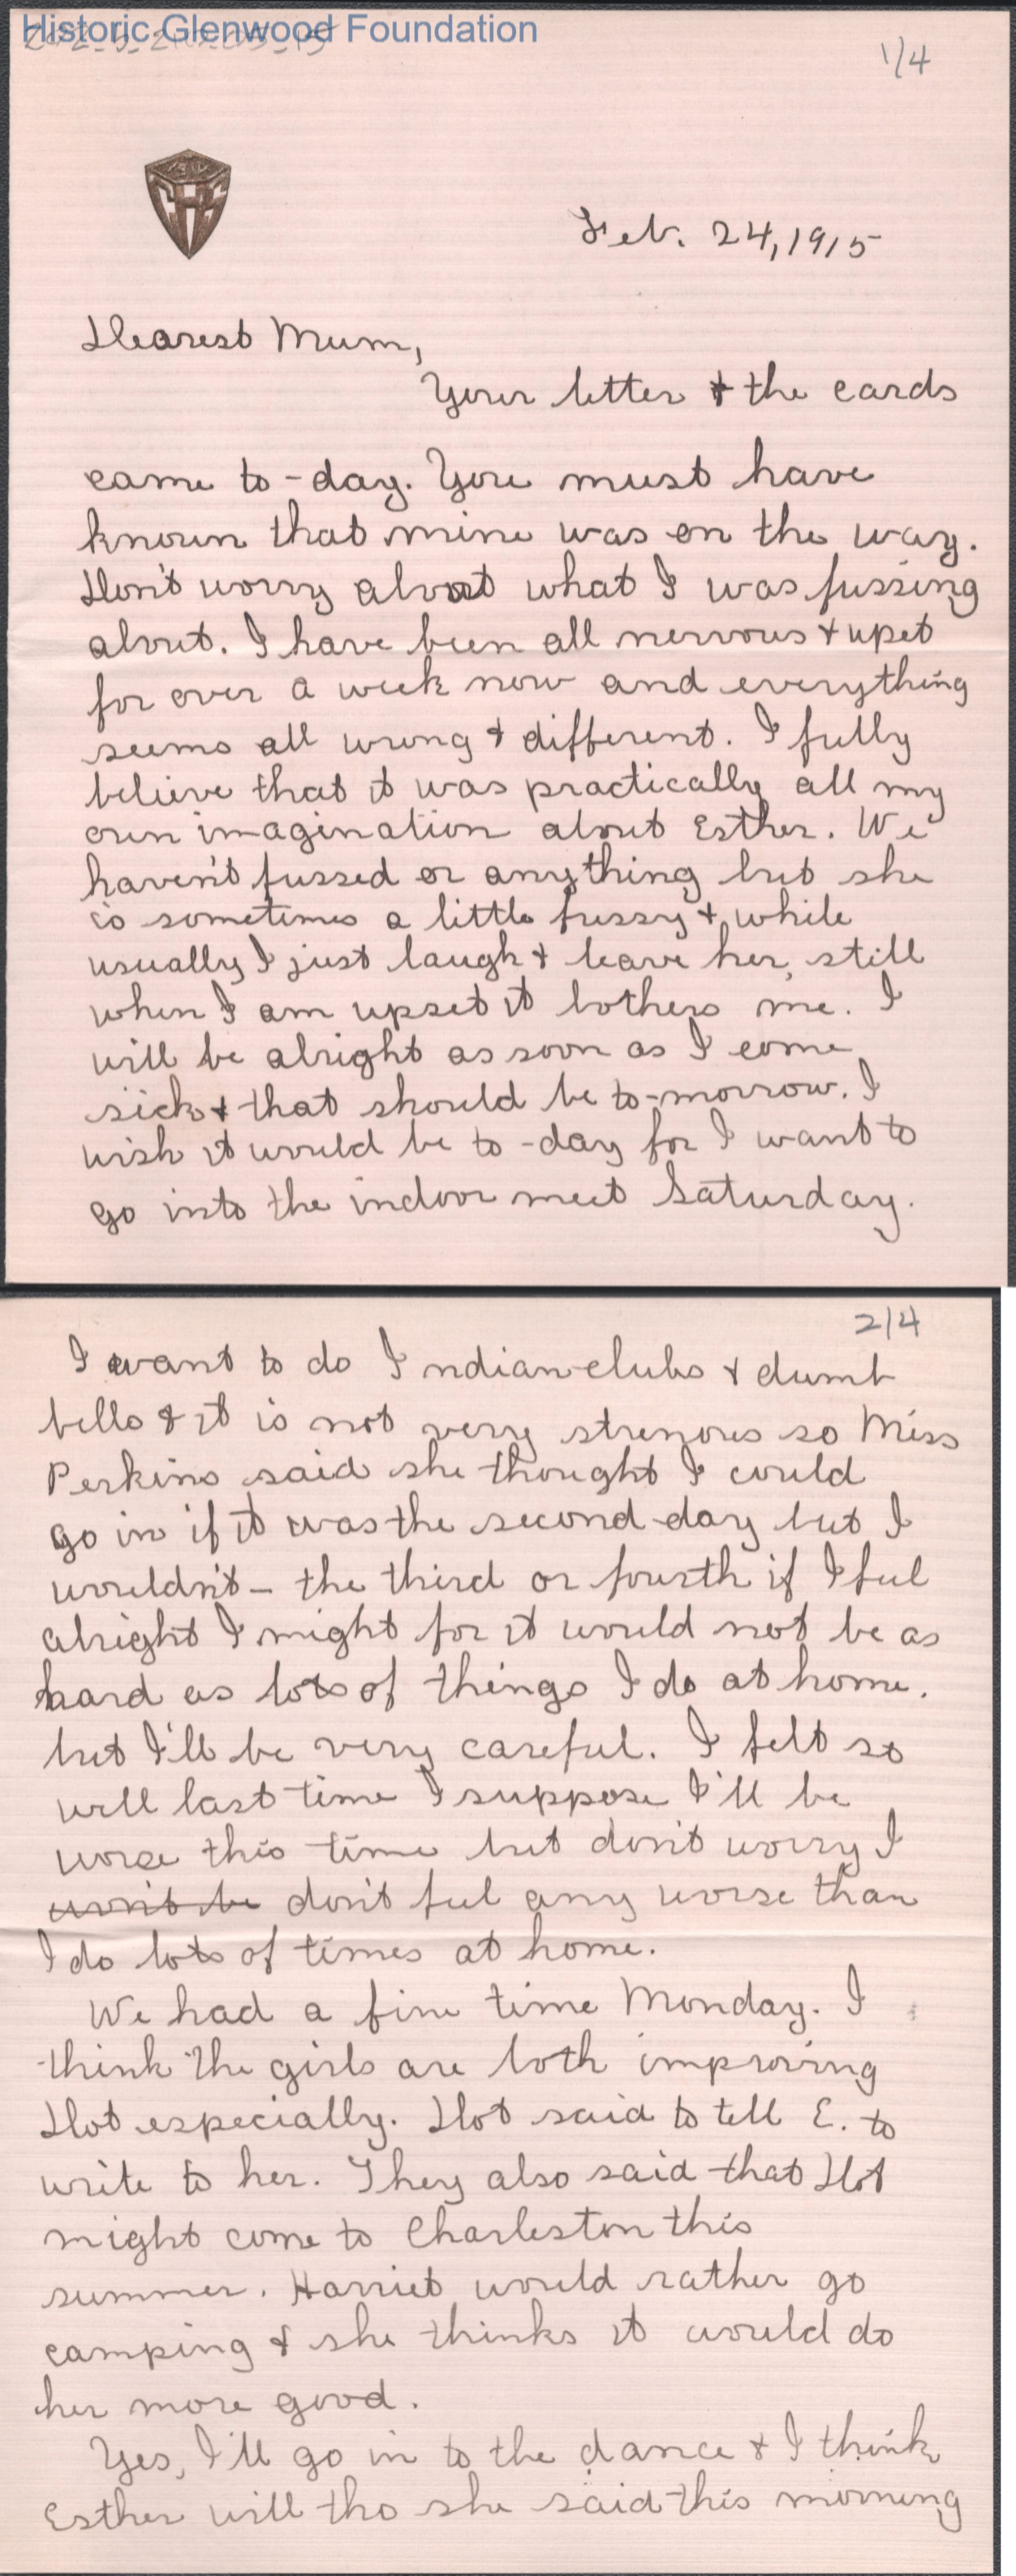 Historic Glenwood Foundation
1/4
Feb. 24, 1915
Dearest Mum,
Your letter & the cards
came to-day. You must have
known that mine was on the way.
Don't worry about what I was fussing
about. I have been all nervous & upet
for over a week now and everything
seems all wrong & different. I fully
believe that it was practically all my
own imagination about Esther. We
haven't fussed or anything but she
is sometimes a little fussy & while
usually I just laugh & leave her, still
when I am upset it bothers me. I
will be alright as soon as I come
sick & that should be to-morrow. I
wish it would be to-day for I want to
go into the indoor meet Saturday.
2/4
I want to do Indian clubs & dumb
bells & it is not very strenous so Miss
Perkins said she thought I could
go in if it was the second day but I
wouldn't - the third or fourth if I feel
alright I might for it would not be as
hard as lots of things I do at home.
but I'll be very careful. I felt so
well last time I suppose I'll be
worse this time but don't worry I
won't be don't feel any worse than
I do lots of times at home.
We had a fine time Monday. I
think the girls are both improving
Dot especially. Dot said to tell E. to
write to her. They also said that Dot
might come to Charleston this
summer. Harriet would rather go
camping & she thinks it would do
her more good.
Yes, I'll go in to the dance & I think
Esther will tho she said this morning